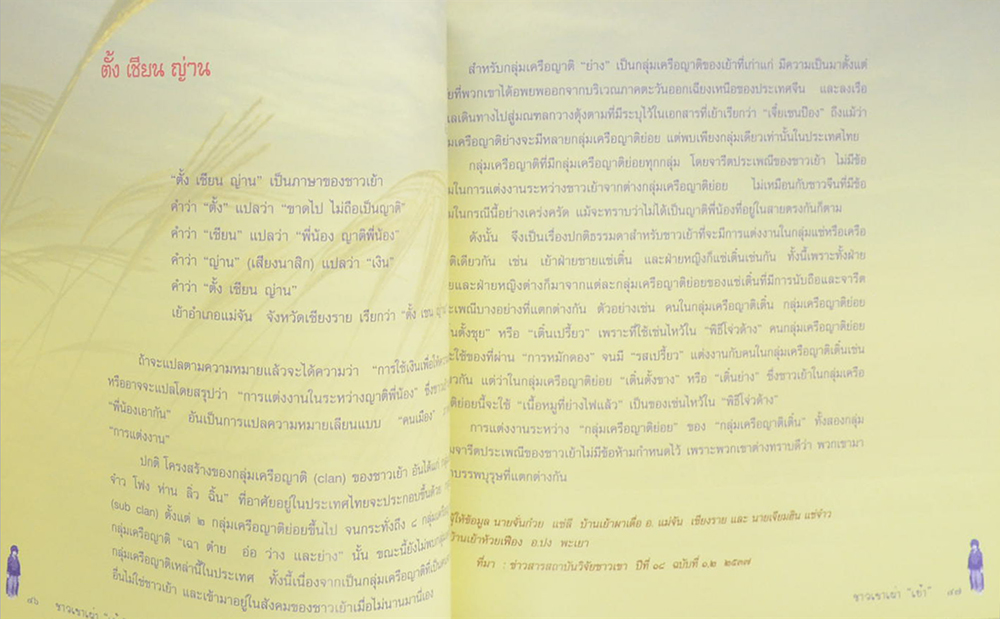 ตั้ง เชียน ญ่าน
"ตั้ง เชียน ญ่าน" เป็นภาษาของชาวเย้า
คำว่า "ตั้ง" แปลว่า "ขาดไป ไม่ถือเป็นญาติ"
คำว่า "เชียน" แปลว่า "พี่น้อง ญาติพี่น้อง"
คำว่า "ญ่าน" (เสียงนาสิก) แปลว่า "เงิน"
คำว่า "ตั้ง เชียน ญ่าน"
เย้าอำเภอแม่จัน จังหวัดเชียงราย เรียกว่า "ตั้ง เชน ญ่าน"
ถ้าจะแปลตามความหมายแล้วจะได้ความว่า "การใช้เงินเพื่อให้
หรืออาจจะแปลโดยสรุปว่า "การแต่งงานในระหว่างญาติพี่น้อง"
"พี่น้องเอากัน" อันเป็นการแปลความหมายเลียนแบบ "คนเมือง"
"การแต่งงาน"
ปกติ โครงสร้างของกลุ่มเครือญาติ (clan) ของชาวเย้า อันได้แก่
จ๋าว โฟง ท่าน ลิ่ว ฉิ้น" ที่อาศัยอยู่ในประเทศไทยจะประกอบขึ้นด้วย
(sub clan) ตั้งแต่ ๒ กลุ่มเครือญาติย่อยขึ้นไป จนกระทั่งถึง ๘
กลุ่มเครือญาติ "เฉา ต๋าย อ่อ ว่าง และย่าง" นั้น ขณะนี้ยังไม่พบ
กลุ่มเครือญาติเหล่านี้ในประเทศ ทั้งนี้เนื่องจากเป็นกลุ่มเครือญาติที่เป็น
อื่นไม่ใช่ชาวเย้า และเข้ามาอยู่ในสังคมของชาวเย้าเมื่อไม่นานมานี้เอง
๔๖ ชาวเขาเผ่า
สำหรับกลุ่มเครือญาติ "ย่าง" เป็นกลุ่มเครือญาติของเย้าที่เก่าแก่ มีความเป็นมาตั้งแต่
ที่พวกเขาได้อพยพออกจากบริเวณภาคตะวันออกเฉียงเหนือของประเทศจีน และลงเรือ
เดินทางไปสู่มณฑลกวางตุ้งตามที่มีระบุไว้ในเอกสารที่เย้าเรียกว่า "เจี่ยเซนป๊อง" ถึงแม้ว่า
เครือญาติย่างจะมีหลายกลุ่มเครือญาติย่อย แต่พบเพียงกลุ่มเดียวเท่านั้นในประเทศไทย
กลุ่มเครือญาติที่มีกลุ่มเครือญาติย่อยทุกกลุ่ม โดยจารีตประเพณีของชาวเย้า ไม่มีข้อ
ในการแต่งงานระหว่างชาวเย้าจากต่างกลุ่มเครือญาติย่อย ไม่เหมือนกับชาวจีนที่มีข้อ
ในกรณีนี้อย่างเคร่งครัด แม้จะทราบว่าไม่ได้เป็นญาติพี่น้องที่อยู่ในสายตรงกันก็ตาม
ดังนั้น จึงเป็นเรื่องปกติธรรมดาสำหรับชาวเย้าที่จะมีการแต่งงานในกลุ่มแซ่หรือเครือ
เดียวกัน เช่น เย้าฝ่ายชายแซ่เติ๋น และฝ่ายหญิงก็แซ่เติ๋นเช่นกัน ทั้งนี้เพราะทั้งฝ่าย
และฝ่ายหญิงต่างก็มาจากแต่ละกลุ่มเครือญาติย่อยของแซ่เติ๋นที่มีการนับถือและจารีต
ประเพณีบางอย่างที่แตกต่างกัน ตัวอย่างเช่น คนในกลุ่มเครือญาติเติ๋น กลุ่มเครือญาติย่อย
ตั้งซุย" หรือ "เติ๋นเปรี้ยว" เพราะที่ใช้เซ่นไหว้ใน "พิธีโจ่วด้าง" คนกลุ่มเครือญาติย่อย
จะใช้ของที่ผ่าน "การหมักดอง" จนมี "รสเปรี้ยว" แต่งงานกับคนในกลุ่มเครือญาติเติ๋นเช่น
กัน แต่ว่าในกลุ่มเครือญาติย่อย "เติ๋นตั้งขาง" หรือ "เติ๋นย่าง" ซึ่งชาวเย้าในกลุ่มเครือ
ญาติย่อยนี้จะใช้ "เนื้อหมูที่ย่างไฟแล้ว" เป็นของเซ่นไหว้ใน "พิธีโจ่วด้าง"
การแต่งงานระหว่าง "กลุ่มเครือญาติย่อย" ของ "กลุ่มเครือญาติเติ๋น" ทั้งสองกลุ่ม
จารีตประเพณีของชาวเย้าไม่มีข้อห้ามกำหนดไว้ เพราะพวกเขาต่างทราบดีว่า พวกเขามา
บรรพบุรุษที่แตกต่างกัน
ผู้ให้ข้อมูล นายจั่นก๋วย แซ่ลี บ้านเย้าผาเดื่อ อ. แม่จัน เชียงราย และ นายเจียมฮิน แซ่จ๋าว
บ้านเย้าห้วยเฟือง อ.ปง พะเยา
ที่มา : ข่าวสารสถาบันวิจัยชาวเขา ปีที่ ๑๘ ฉบับที่ ๑,๒ ๒๕๓๗
ชาวเขาเผ่า "เย้า" ๔๗